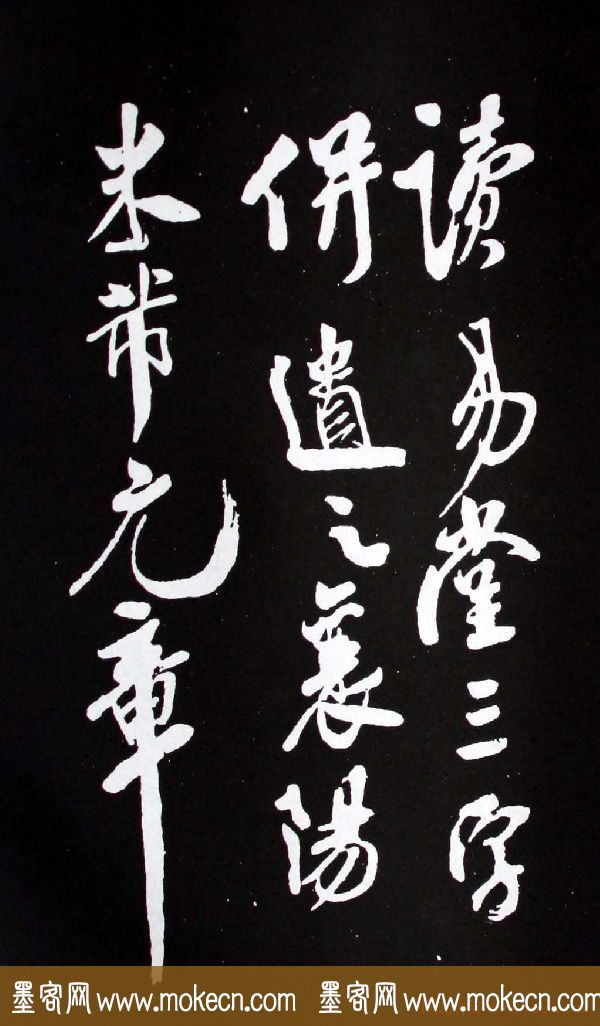 读易堂三字
併遗之襄陽
米芾元章
墨客网 www.mokecn.com 墨客网 www.mokecn.com